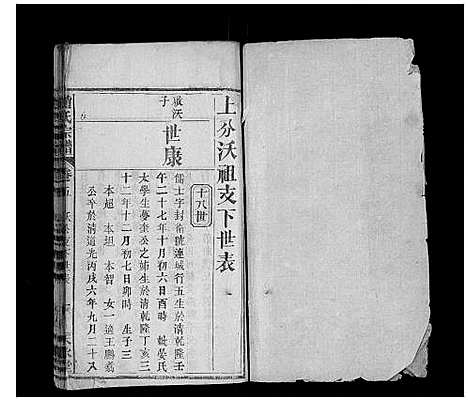 上分沃祖支下世表
十八世
啟沃
子
世康
儒士字封衛號連城行五生於清乾隆壬
午二十七年十月初六日酉時 娶晏氏
太學生夢奎公之姊生於清乾隆丁亥三
十二年十二月初七日卯時 生子三
本超 本坦 本智 女一適王鵬翥
公卒於清道光丙戌六年九月二十八
氏宗譜